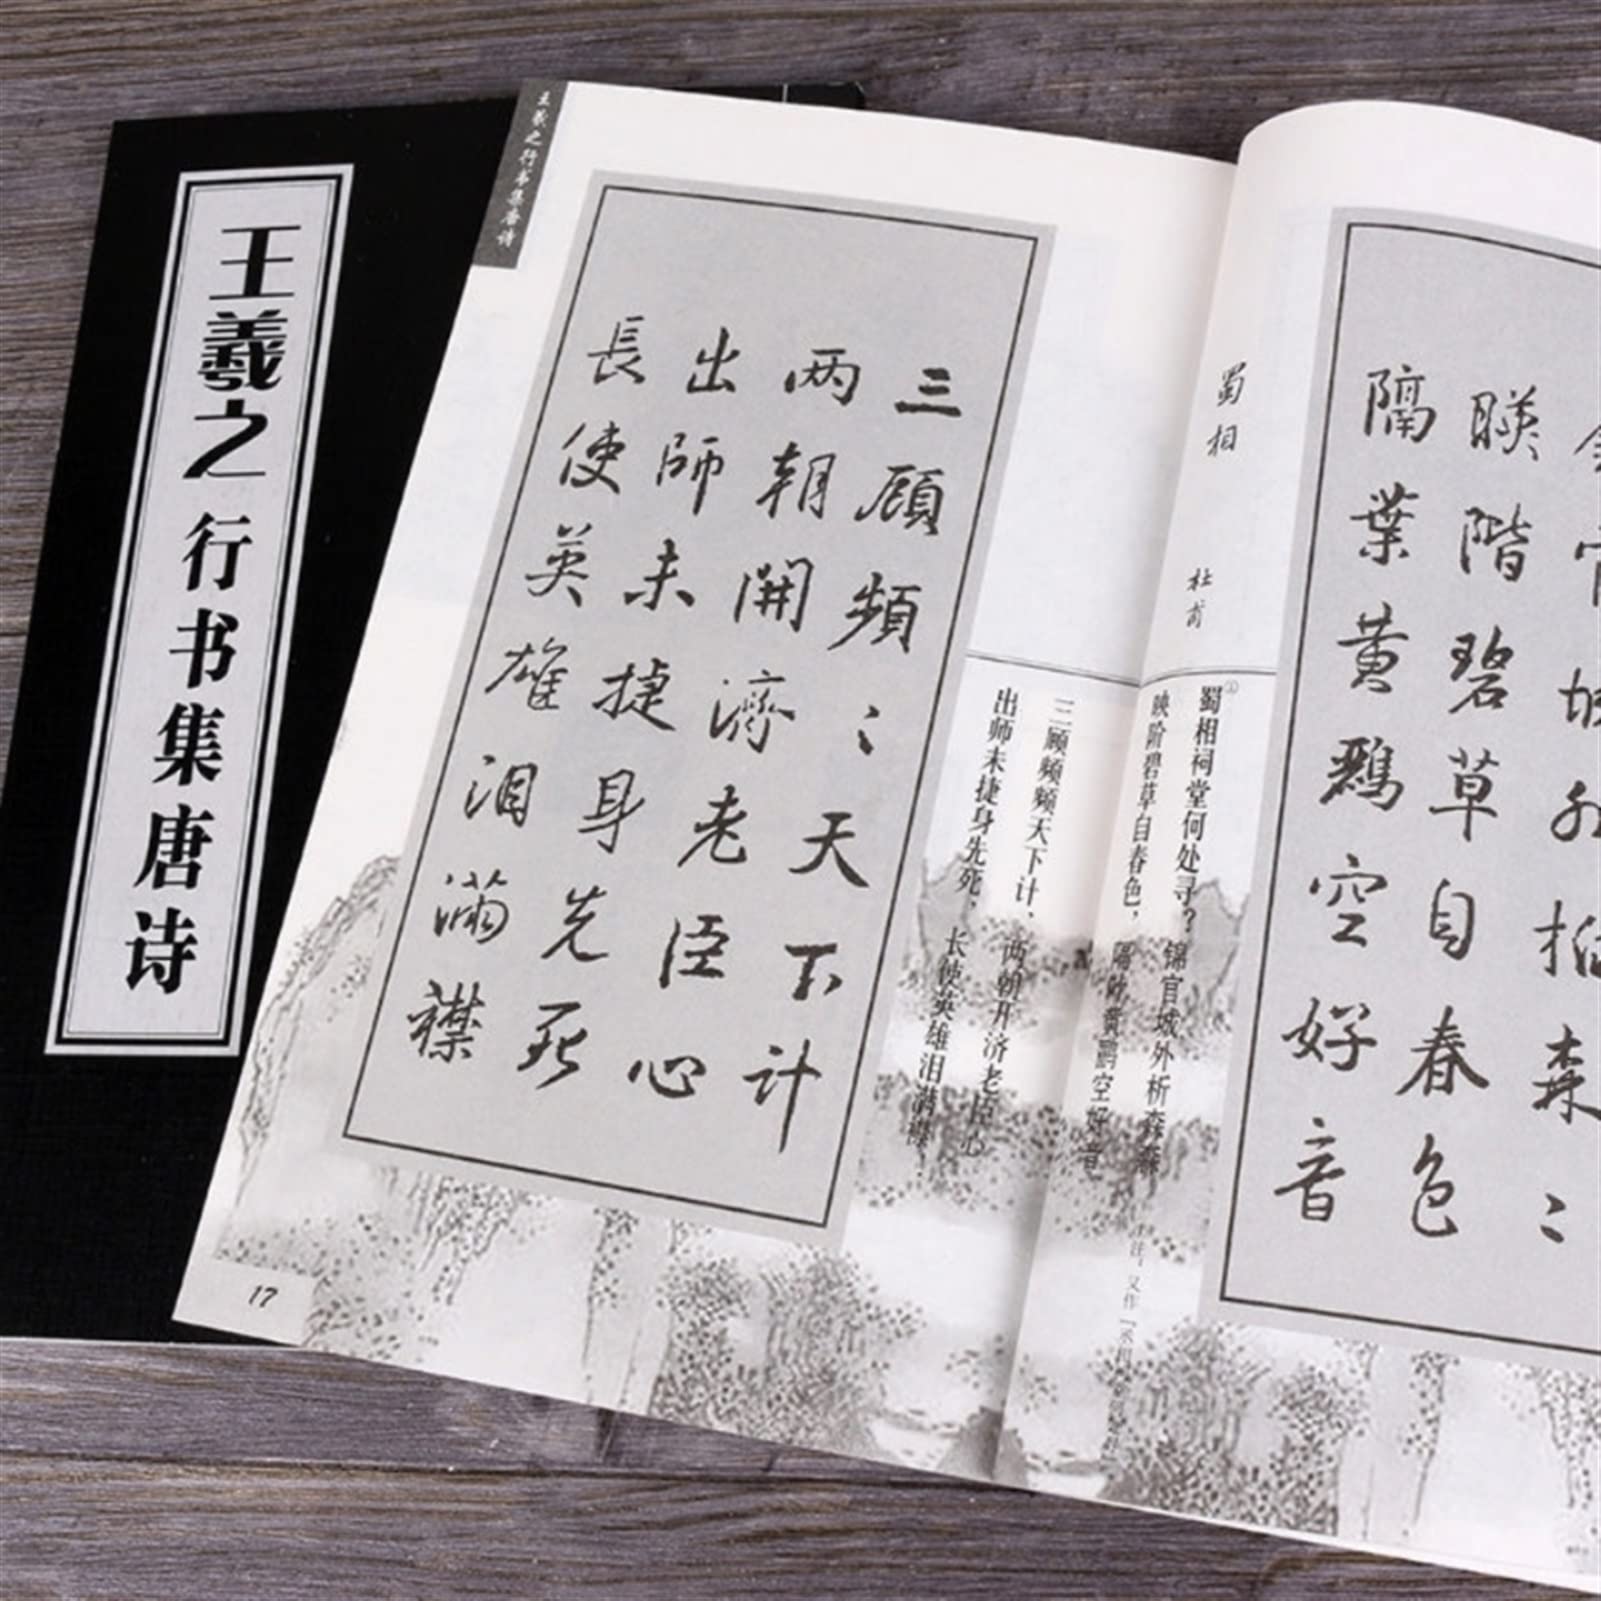 王羲之行书集唐诗
王羲之行书集唐诗
蜀相
杜甫
暎階碧草自春色
隔葉黄鸝空好音
蜀相祠堂何处寻？ 锦官城外析森森
映阶碧草自春色， 隔叶黄鹂空好音
三顾频频天下计， 两朝开济老臣心
出师未捷身先死， 长使英雄泪满襟
三顧頻〻天下计
两朝開濟老臣心
出師未捷身先死
長使英雄泪滿襟
17